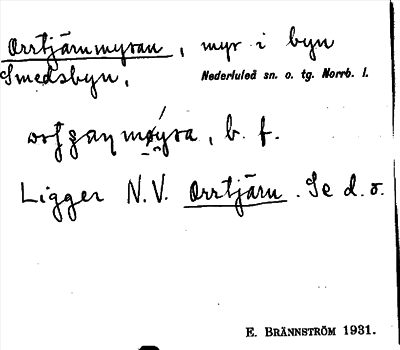 Orrtjärnmyran, myr i byn
Smedsbyn, Nederluleå sn. o. tg. Norrb. l.
, b. f.
Ligger N.V. Orrtjärn. Se d. o.
E. BRÄNNSTRÖM 1931.